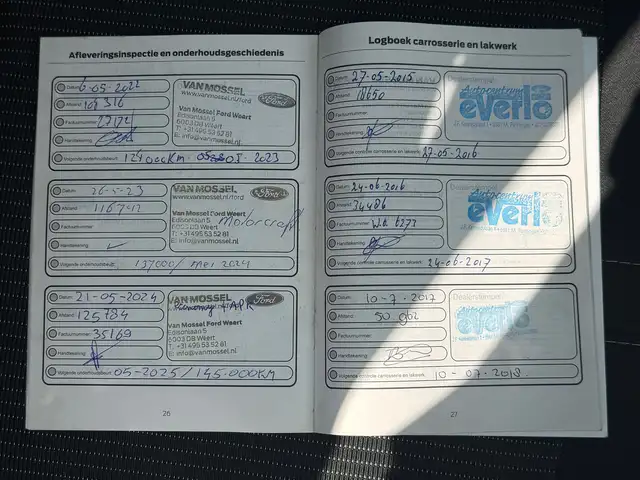 Afleveringsinspectie en onderhoudsgeschiedenis
Datum: 6-05-2022
Afstand: 109 316
Factuurnummer:
Handtekening:
Volgende onderhoudsbeurt: 124000KM 05-2023
VAN MOSSEL
www.vanmossel.nl/ford
Ford
Van Mossel Ford Weert
Edisonlaan 5
6003 DB Weert
T: +31 495 53 52 81
E: info@vanmossel.nl
Datum: 26-5-23
Afstand: 116742
Factuurnummer:
Handtekening:
Volgende onderhoudsbeurt: 137000/ mei 2024
VAN MOSSEL
www.vanmossel.nl/ford
Ford
Van Mossel Ford Weert
Motorcraft
Edisonlaan 5
6003 DB Weert
T: +31 495 53 52 81
E: info@vanmossel.nl
Datum: 21-05-2024
Afstand: 125784
Factuurnummer: 35169
Handtekening:
Volgende onderhoudsbeurt: 05-2025/145.000KM
VAN MOSSEL
+APK
Ford
Van Mossel Ford Weert
Edisonlaan 5
6003 DB Weert
T: +31 495 53 52 81
E: info@vanmossel.nl
26
Logboek carrosserie en lakwerk
Datum: 27-05-2015
Afstand: 18650
Factuurnummer:
Handtekening:
Volgende controle carrosserie en lakwerk: 27-05-2016
Dealerstempel:
Autocentrum
everlo
Datum: 24-06-2016
Afstand: 34486
Factuurnummer: 6273
Handtekening:
Volgende controle carrosserie en lakwerk: 24-06-2017
Dealerstempel:
Autocentrum
everlo
Datum: 10-7-2017
Afstand: 50.962
Factuurnummer:
Handtekening:
Volgende controle carrosserie en lakwerk: 10-07-2018
Dealerstempel:
everlo
27